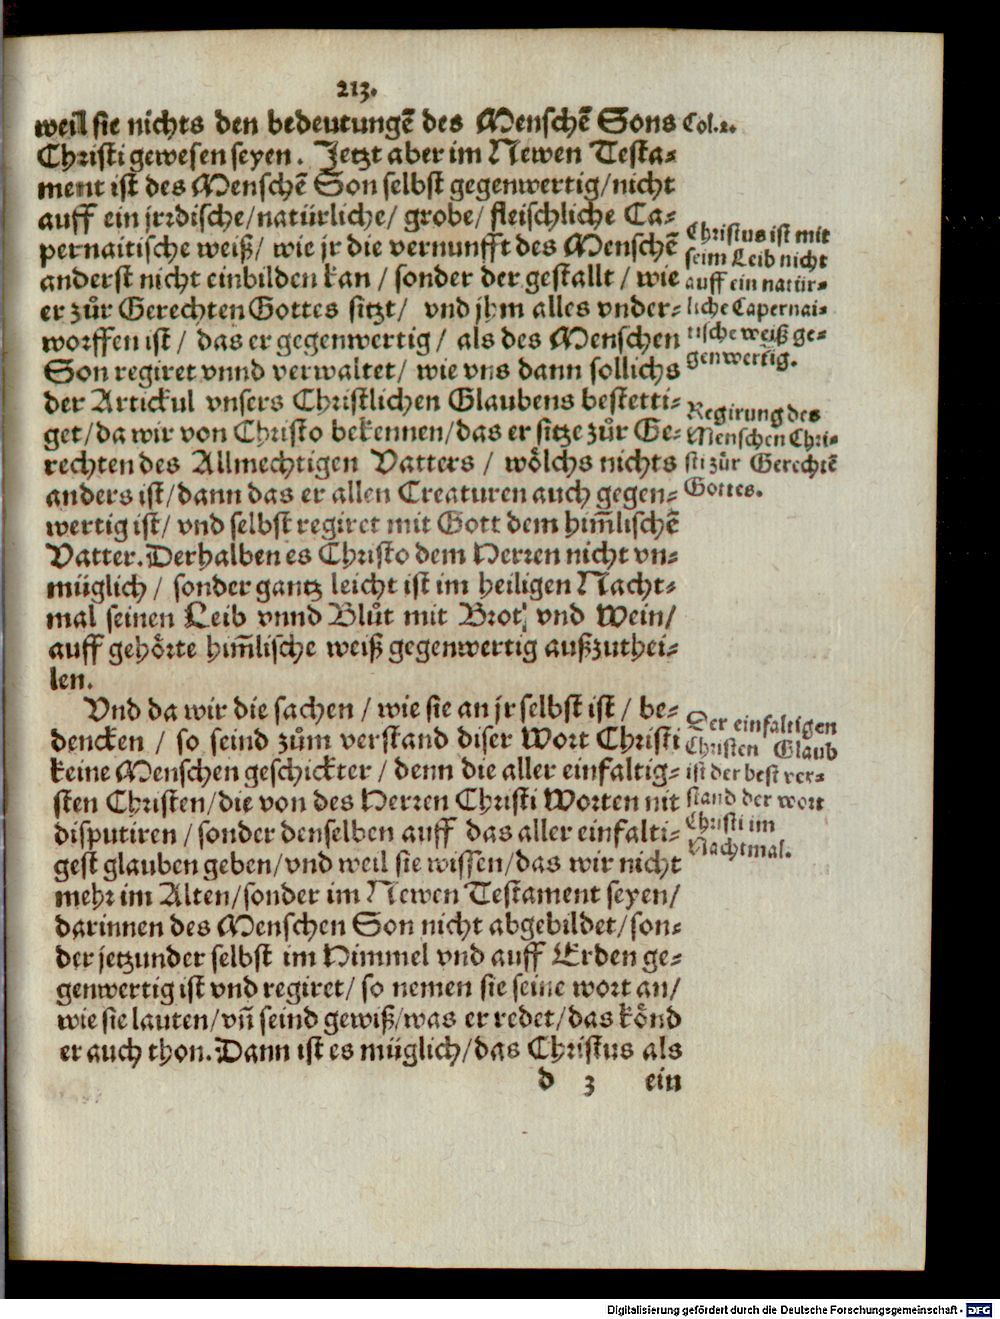 213.
weil sie nichts den bedeutungẽ des Menschẽ Sons
Christi gewesen seyen. Jetzt aber im Newen Testa-
ment ist des Menschẽ Son selbst gegenwertig/nicht
auff ein jrrdische/natürliche/ grobe/ fleischliche Ca-
pernaitische weiß/ wie jr die vernunfft des Menschẽ
anderst nicht einbilden kan / sonder der gestallt / wie
er zůr Gerechten Gottes sitzt/ vnd jhm alles vnder-
worffen ist / das er gegenwertig / als des Menschen
Son regiret vnnd verwaltet/ wie vns dann sollichs
der Artickul vnsers Christlichen Glaubens bestetti-
get/da wir von Christo bekennen/das er sitze zůr Ge-
rechten des Allmechtigen Vatters / wölchs nichts
anders ist/dann das er allen Creaturen auch gegen-
wertig ist/ vnd selbst regiret mit Gott dem him̃lischẽ
Vatter. Derhalben es Christo dem Herren nicht vn-
müglich / sonder gantz leicht ist im heiligen Nacht-
mal seinen Leib vnnd Blůt mit Brot vnd Wein/
auff gehörte him̃lische weiß gegenwertig außzuthei-
len.
Vnd da wir die sachen / wie sie an jr selbst ist / be-
dencken / so seind zům verstand diser Wort Christi
keine Menschen geschickter / denn die aller einfaltig-
sten Christen/die von des Herren Christi Worten nit
disputiren / sonder denselben auff das aller einfalti-
gest glauben geben/vnd weil sie wissen/das wir nicht
mehr im Alten/sonder im Newen Testament seyen/
darinnen des Menschen Son nicht abgebildet/son-
der jetzunder selbst im Himmel vnd auff Erden ge-
genwertig ist vnd regiret/ so nemen sie seine wort an/
wie sie lauten/vñ seind gewiß/was er redet/das könd
er auch thon. Dann ist es müglich/das Christus als
d 3 ein
Col.2.
Christus ist mit
seim Leib nicht
auff ein natür-
liche Capernai-
tische weiß ge-
genwertig.
Regirung des
Menschen Chri-
sti zůr Gerechtẽ
Gottes.
Der einfaltigen
Christen Glaub
ist der best ver-
stand der wort
Christi im
Nachtmal.
Digitalisierung gefördert durch die Deutsche Forschungsgemeinschaft - DFG